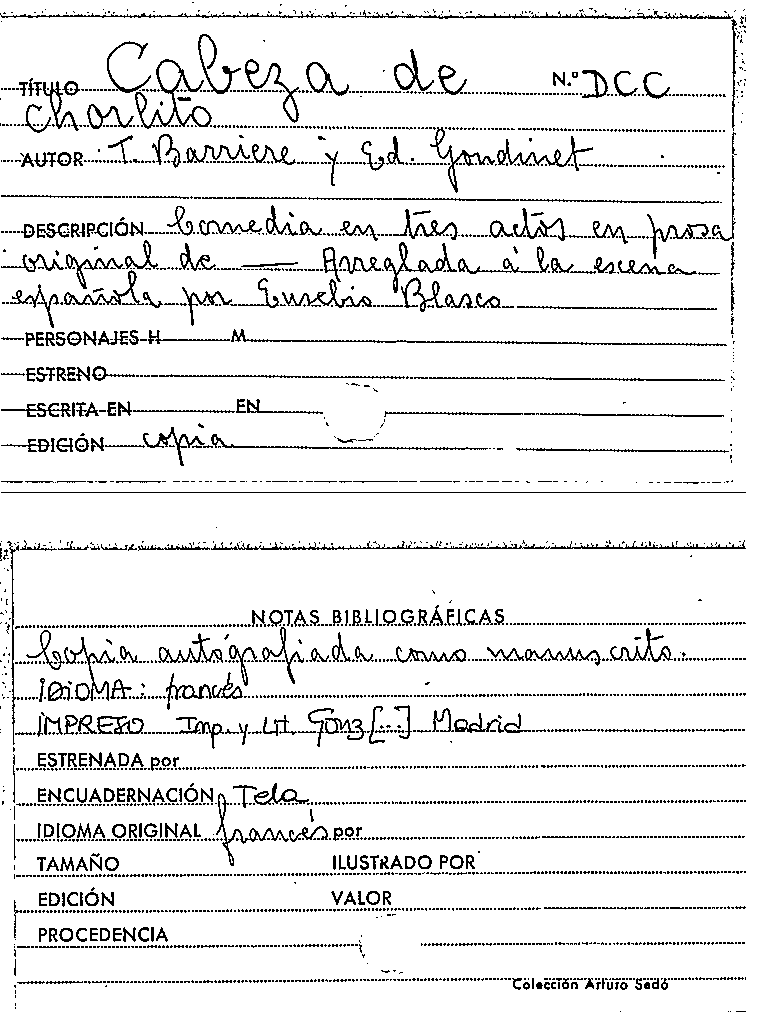 TÍTULO Cabeza de N.º DCC
Chorlito
AUTOR T. Barriere y Ed. Gondinet
DESCRIPCIÓN Comedia en tres actos en prosa
original de — Arreglada á la escena
española por Eusebio Blasco
PERSONAJES H M
ESTRENO
ESCRITA EN EN
EDICIÓN copia
NOTAS BIBLIOGRÁFICAS
Copia autógrafiada como manuscrito.
IDIOMA: francés
IMPRESO Imp. y Lit. Gonz[...] Madrid
ESTRENADA por
ENCUADERNACIÓN Tela
IDIOMA ORIGINAL francés por
TAMAÑO ILUSTRADO POR
EDICIÓN VALOR
PROCEDENCIA
Colección Arturo Sedó